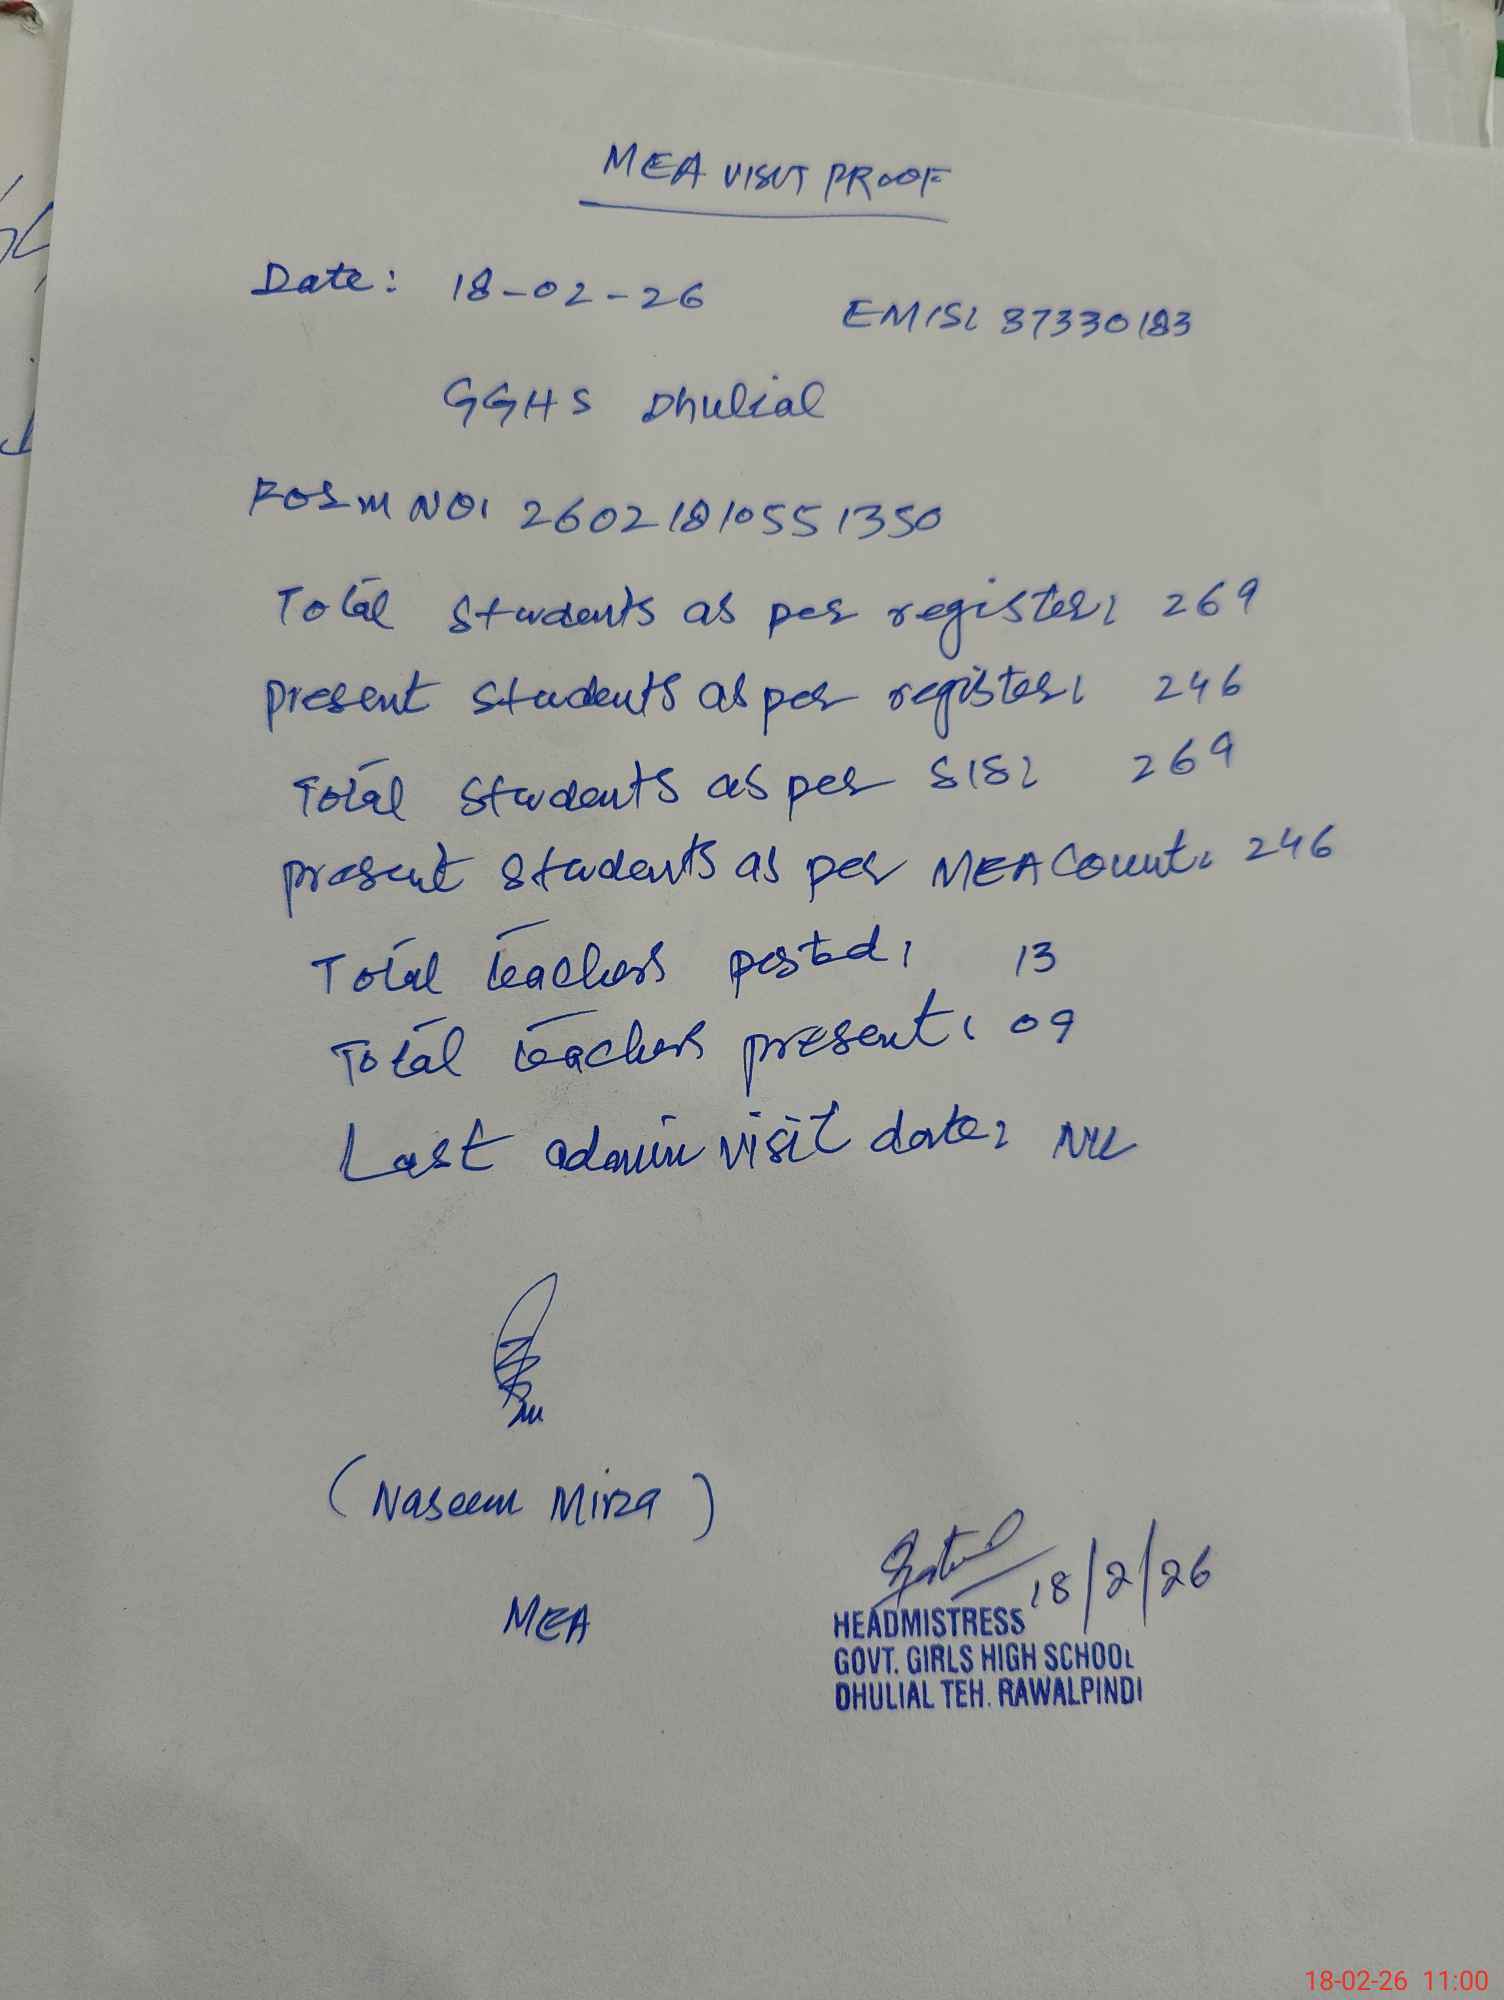 MEA VISIT PROOF
Date: 18-02-26
EMIS: 37330183
GGHS Dhulial
Form No: 26021810551350
Total students as per register: 269
present students as per register: 246
Total students as per SIS: 269
present students as per MEA Count: 246
Total teachers posted: 13
Total teachers present: 09
Last admin visit date: Nil
(Naseem Mirza)
MEA
18/2/26
HEADMISTRESS
GOVT. GIRLS HIGH SCHOOL
DHULIAL TEH. RAWALPINDI
18-02-26 11:00